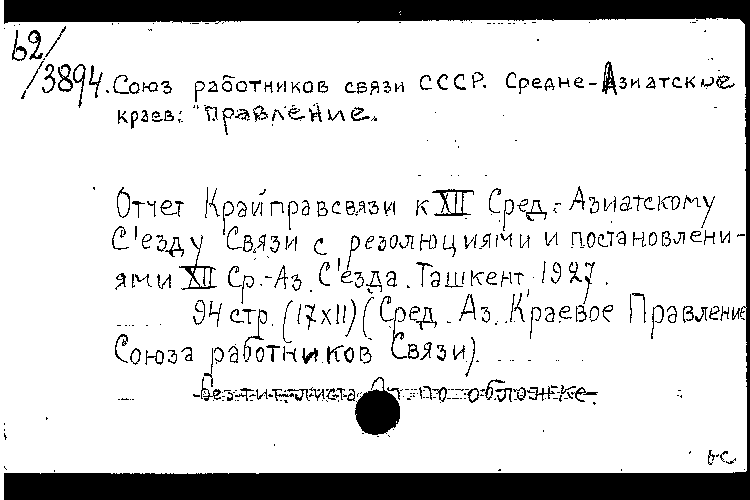 62/3894.
Союз работников связи СССР. Средне-Азиатские
краев. правление.
Отчет Крайправсвязи к XII Сред.-Азиатскому
С'езду Связи с резолюциями и постановлени-
ями XII Ср.-Аз. С'езда. Ташкент 1927.
94 стр. (17х11) (Сред. Аз. Краевое Правление
Союза работников Связи)
Без тит. листа. Оп. по обложке.